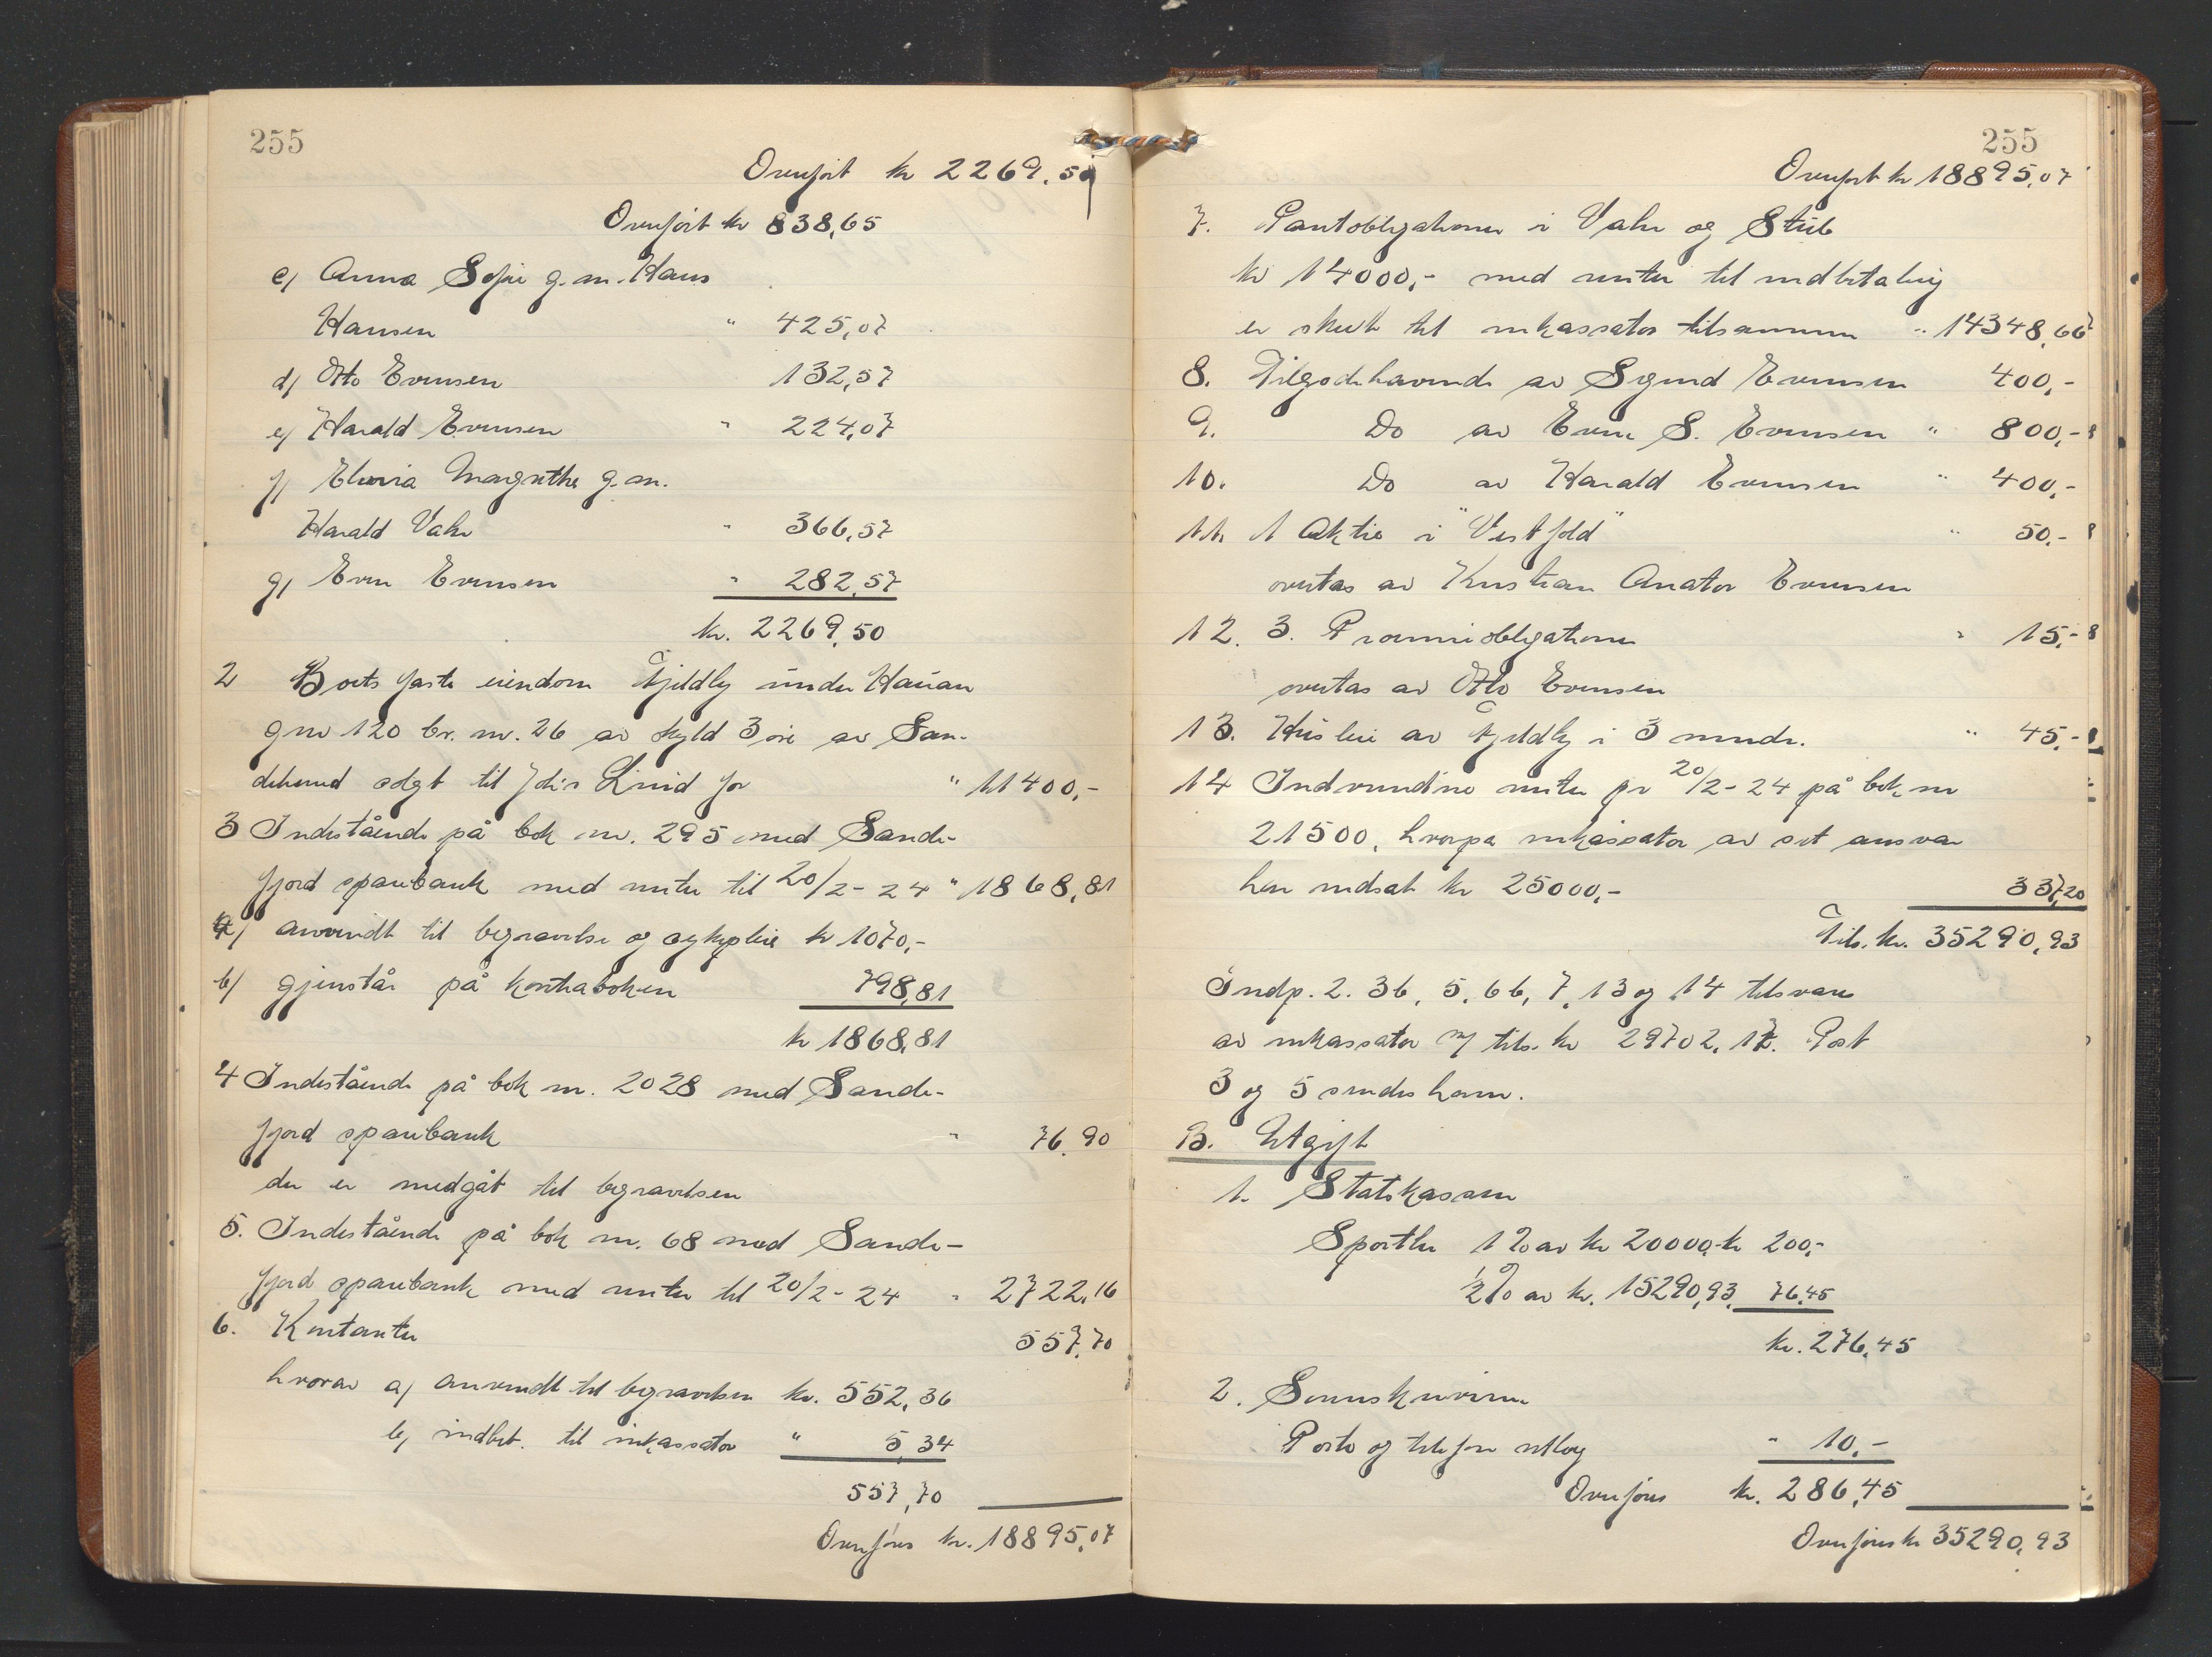 255
Overført kr 2269.50
Overført kr 838,65
c) Anna Sofie g.m. Hans
Hansen " 425,07
d) Otto Evensen 132,57
e) Harald Evensen " 224,07
f) Elvina Margrethe g.m.
Harald Vahr " 366,57
g) Even Evensen " 282,57
kr. 2269,50
2 Boets faste eiendom Fjeldly under Hauan
gnr 120 br. nr. 26 av skyld 3 øre av San-
deherred solgt til Lind for " 11400,-
3 Indestående på bok nr. 295 med Sande-
fjord sparebank med renter til 20/2-24 " 1868,81
a) anvendt til begravelse og sykepleie kr 1070,-
b) gjenstår på kontraboken 798,81
kr 1868,81
4 Indestående på bok nr. 2028 med Sande-
fjord sparebank " 76.90
der er medgåt til begravelsen
5. Indestående på bok nr. 68 med Sande-
fjord sparebank med renter til 20/2-24 " 2722,16
6. Kontanter 557,70
hvorav a) anvendt til begravelsen kr. 552,36
b) indbet. til inkassator " 5,34
557,70
Overføres kr. 18895,07
255
Overført kr 18895,07
7. Pantobligationer i Vahr og Stub
kr 14000,- med renter til indbetaling
er skeet til inkassator tilsammen " 14348,66
8. Tilgodehavende av Sigurd Evensen 400,-
9. Do av Even S. Evensen " 800,-
10. Do av Harald Evensen " 400,-
11. 1 aktie i "Vestfold" " 50,-
overtas av Kristian Anator Evensen
12. 3. Præmieobligationer " 15,-
overtas av Otto Evensen
13. Husleie av Fjeldly i 3 mndr. " 45,-
14 Indvundne renter pr 20/2-24 på bok nr
21500, hvorpå inkassator av sit ansvar
har indsat kr 25000,- 337,20
Tils. kr. 35290,93
Indp. 2. 3b, 5, 6b, 7, 13 og 14 tilsvares
av inkassator m/ tils. kr 29702,17. Post
3 og 5 sendes ham.
B. Utgift
1. Statskassen
Sportler 1% av kr 20000,- kr 200,-
1/2% av kr. 15290,93, 76,45
kr. 276,45
2. Sorenskriveren
Porto og telefon utlæg " 10,-
Overføres kr. 286,45
Overføres kr 35290,93